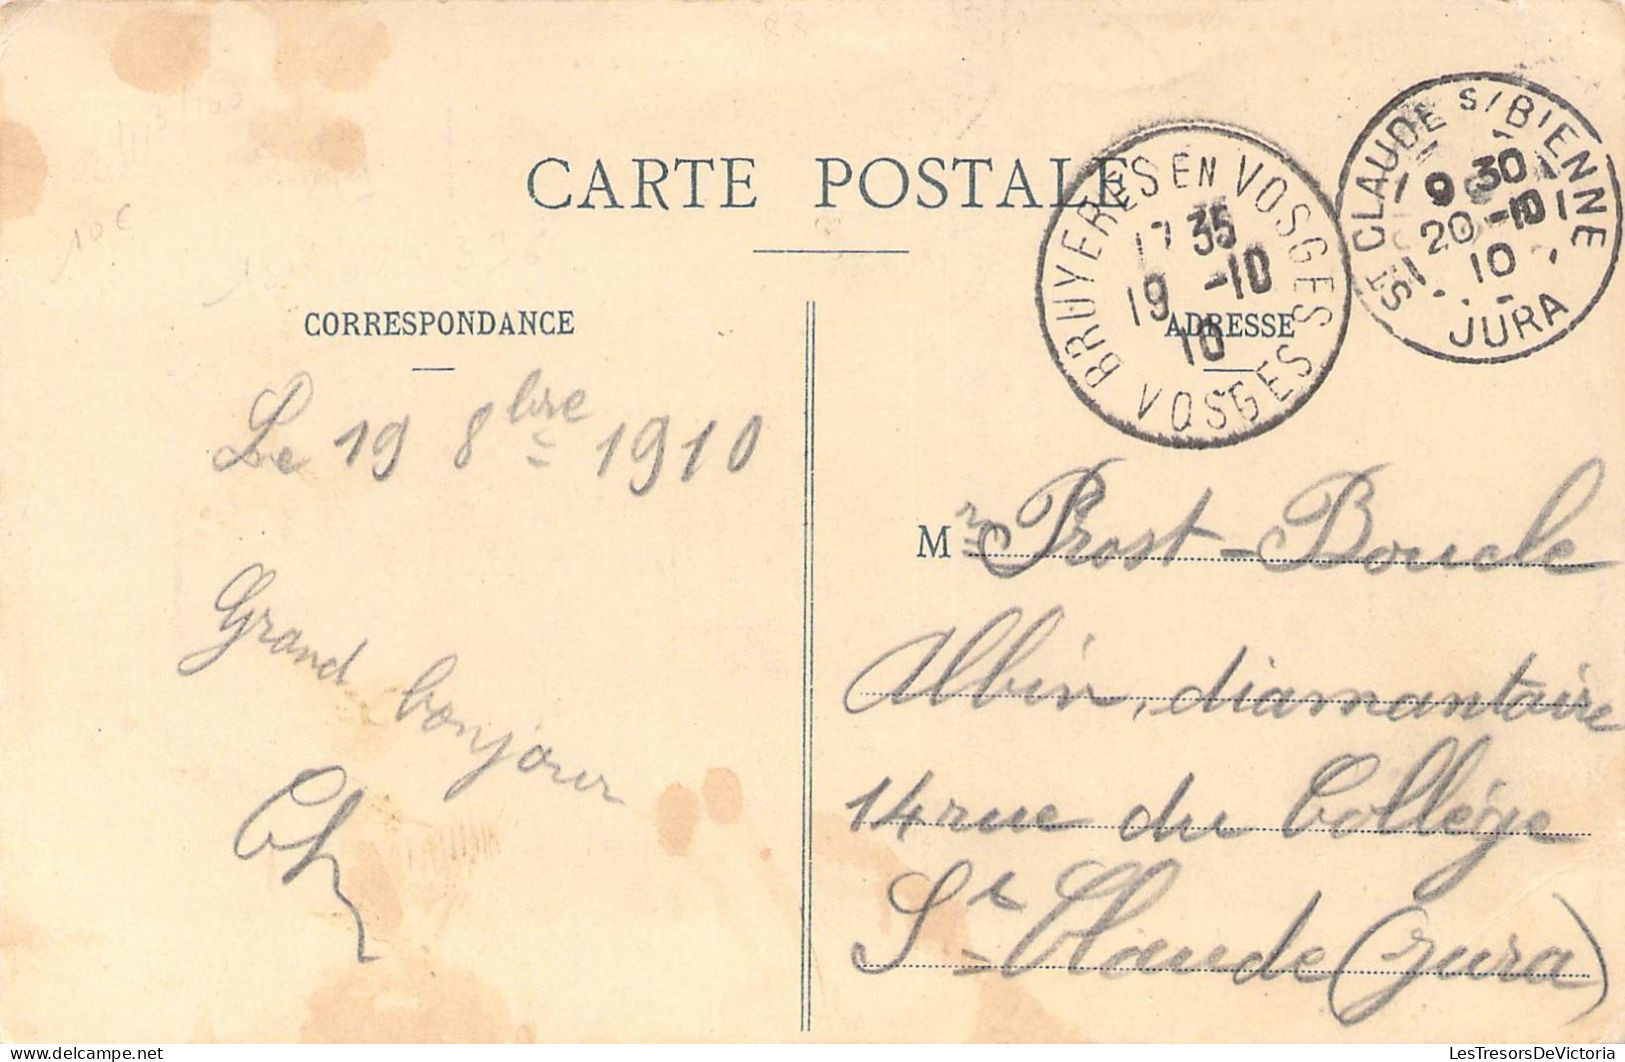 CARTE POSTALE
CORRESPONDANCE
ADRESSE
BRUYERES EN VOSGES
35
19 -10
10
VOSGES
ST CLAUDE S/BIENNE
9 30
20 -10
10
JURA
10€
Le 19 8bre 1910
Grand bonjour
Ch
M Prost-Boucle
Albin, diamantaire
14 rue du Collége
St Claude (Jura)
LesTresorsDeVictoria